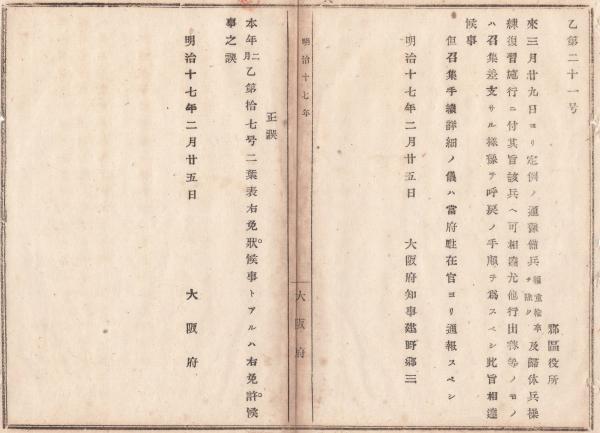 乙第二十一号
郡區役所
來三月廿九日ヨリ定例ノ通豫備兵輜重輸卒ヲ除ク及歸休兵操
練復習施行ニ付其旨該兵ヘ可相達尤他行出稼等ノモノ
ハ召集差支サル樣豫テ呼戻ノ手順ヲ爲スヘシ此旨相達
候事
但召集手續詳細ノ儀ハ當府駐在官ヨリ通報スヘシ
明治十七年二月廿五日
大阪府知事建野郷三
明治十七年
大阪府
正誤
本年二月乙第拾七号二葉表右免狀。候事トアルハ右免許。候
事之誤
明治十七年二月廿五日
大阪府